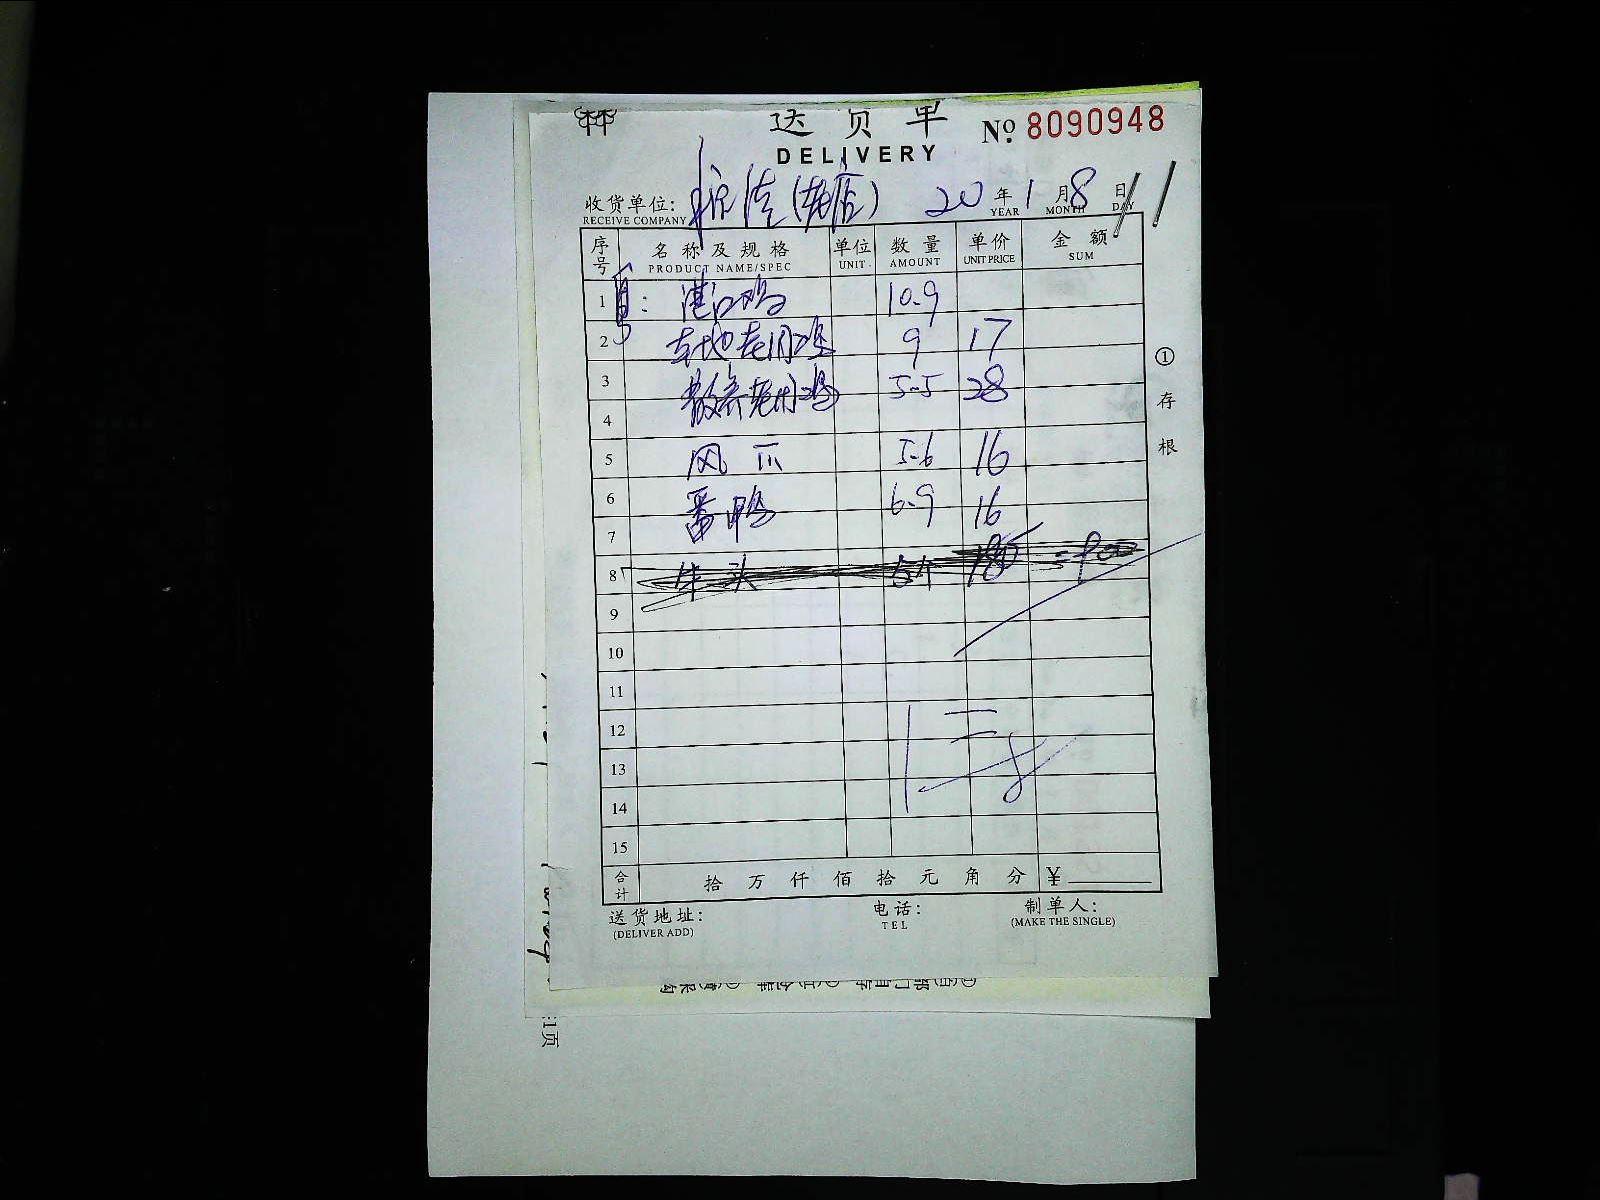 送货单
№ 8090948
DELIVERY
收货单位: (老店) 20 年 1 月 8 日
RECEIVE COMPANY YEAR MONTH DAY
序号 名称及规格 单位 数量 单价 金额
PRODUCT NAME/SPEC UNIT. AMOUNT UNIT PRICE SUM
1 湛江鸡 10.9
2 本地老门鸡 9 17
3 散养老门鸡 5-5 28
4
5 凤爪 5-6 16
6 番鸭 6.9 16
7
8 牛头 5个 =900
9
10
11
12
13
14
15
合计 拾 万 仟 佰 拾 元 角 分 ¥
送货地址: 电话: 制单人:
(DELIVER ADD) TEL (MAKE THE SINGLE)
① 存根